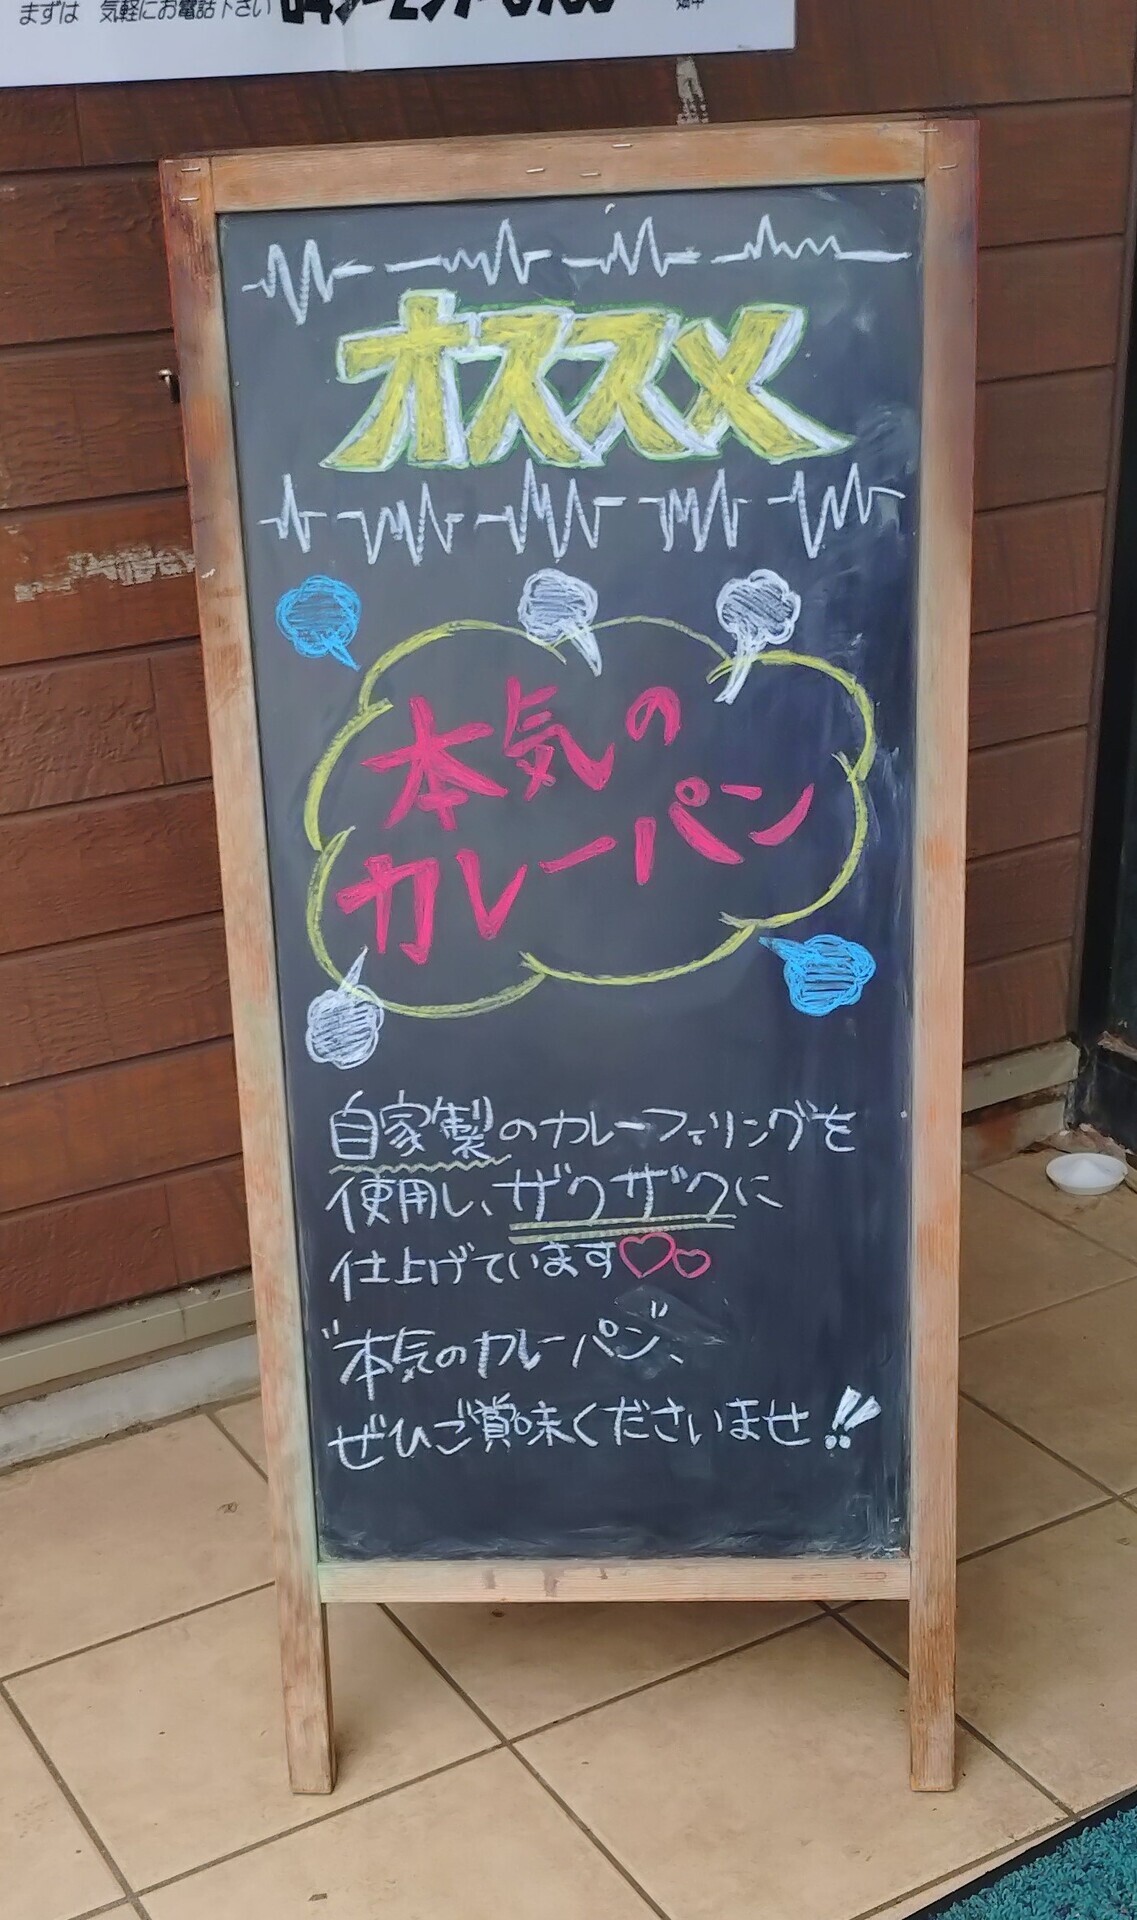 まずは 気軽にお電話下さい
オススメ
本気の
カレーパン
自家製のカレーフィリングを
使用し、ザクザクに
仕上げています♡♡
"本気のカレーパン"、
ぜひご賞味くださいませ!!